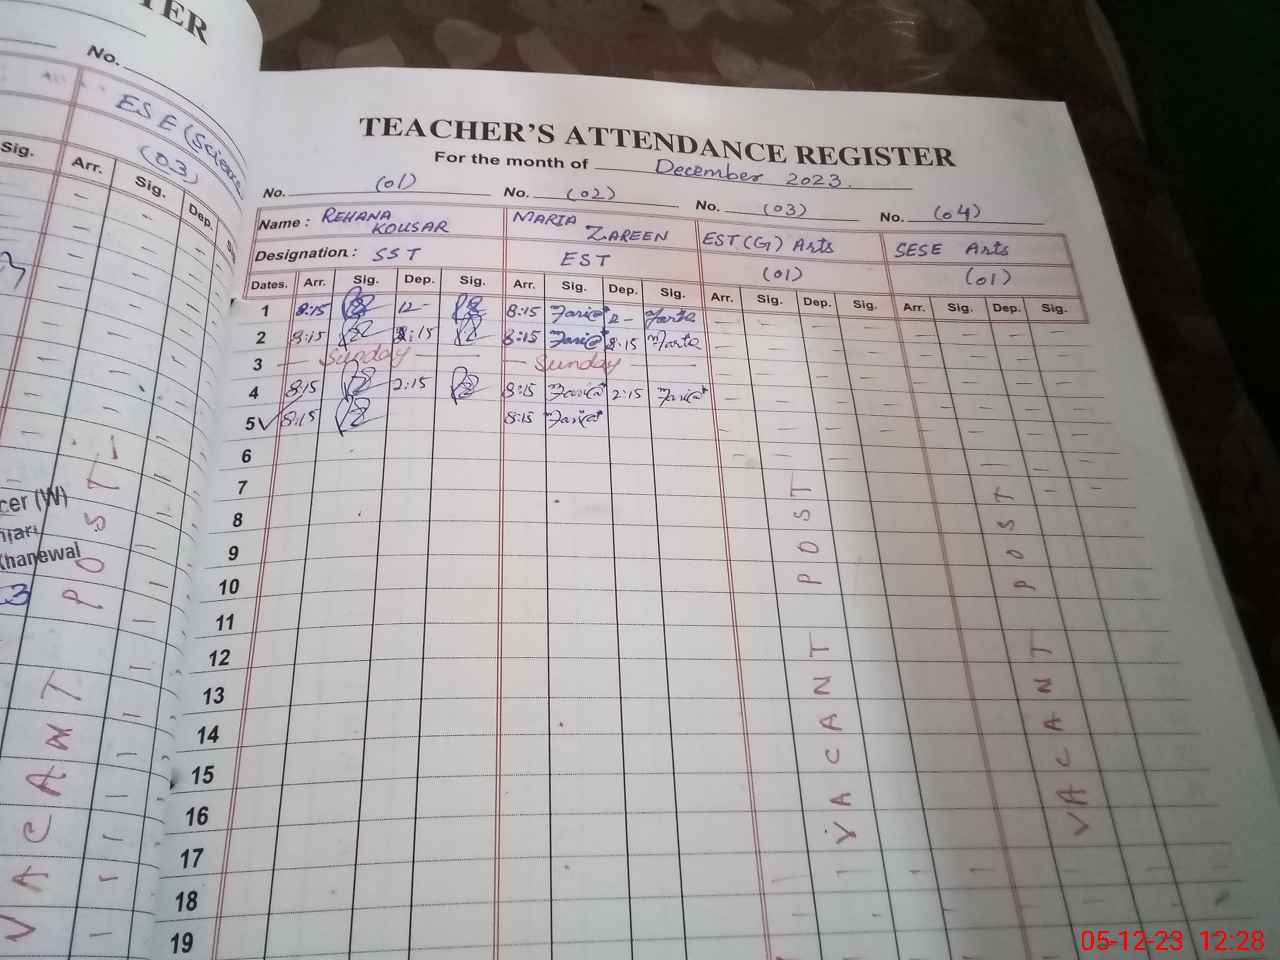 TER
No.
ESE (Science
(03)
Sig. Arr. Sig. Dep. S
cer (W)
Khanewal
VACANT POST
TEACHER'S ATTENDANCE REGISTER
For the month of December 2023.
No. (01) No. (02) No. (03) No. (04)
Name: REHANA KOUSAR MARIA ZAREEN EST(G) Arts SESE Arts
Designation: SST EST (01) (01)
Dates. Arr. Sig. Dep. Sig. Arr. Sig. Dep. Sig. Arr. Sig. Dep. Sig. Arr. Sig. Dep. Sig.
1 8:15 12- 8:15 12-
2 8:15 2:15 8:15 2:15
3 Sunday Sunday
4 8:15 2:15 8:15 2:15
5 8:15 8:15
6
7
8
9
10
11
12
13
14
15
16
17
18
19
VACANT POST
VACANT POST
05-12-23 12:28